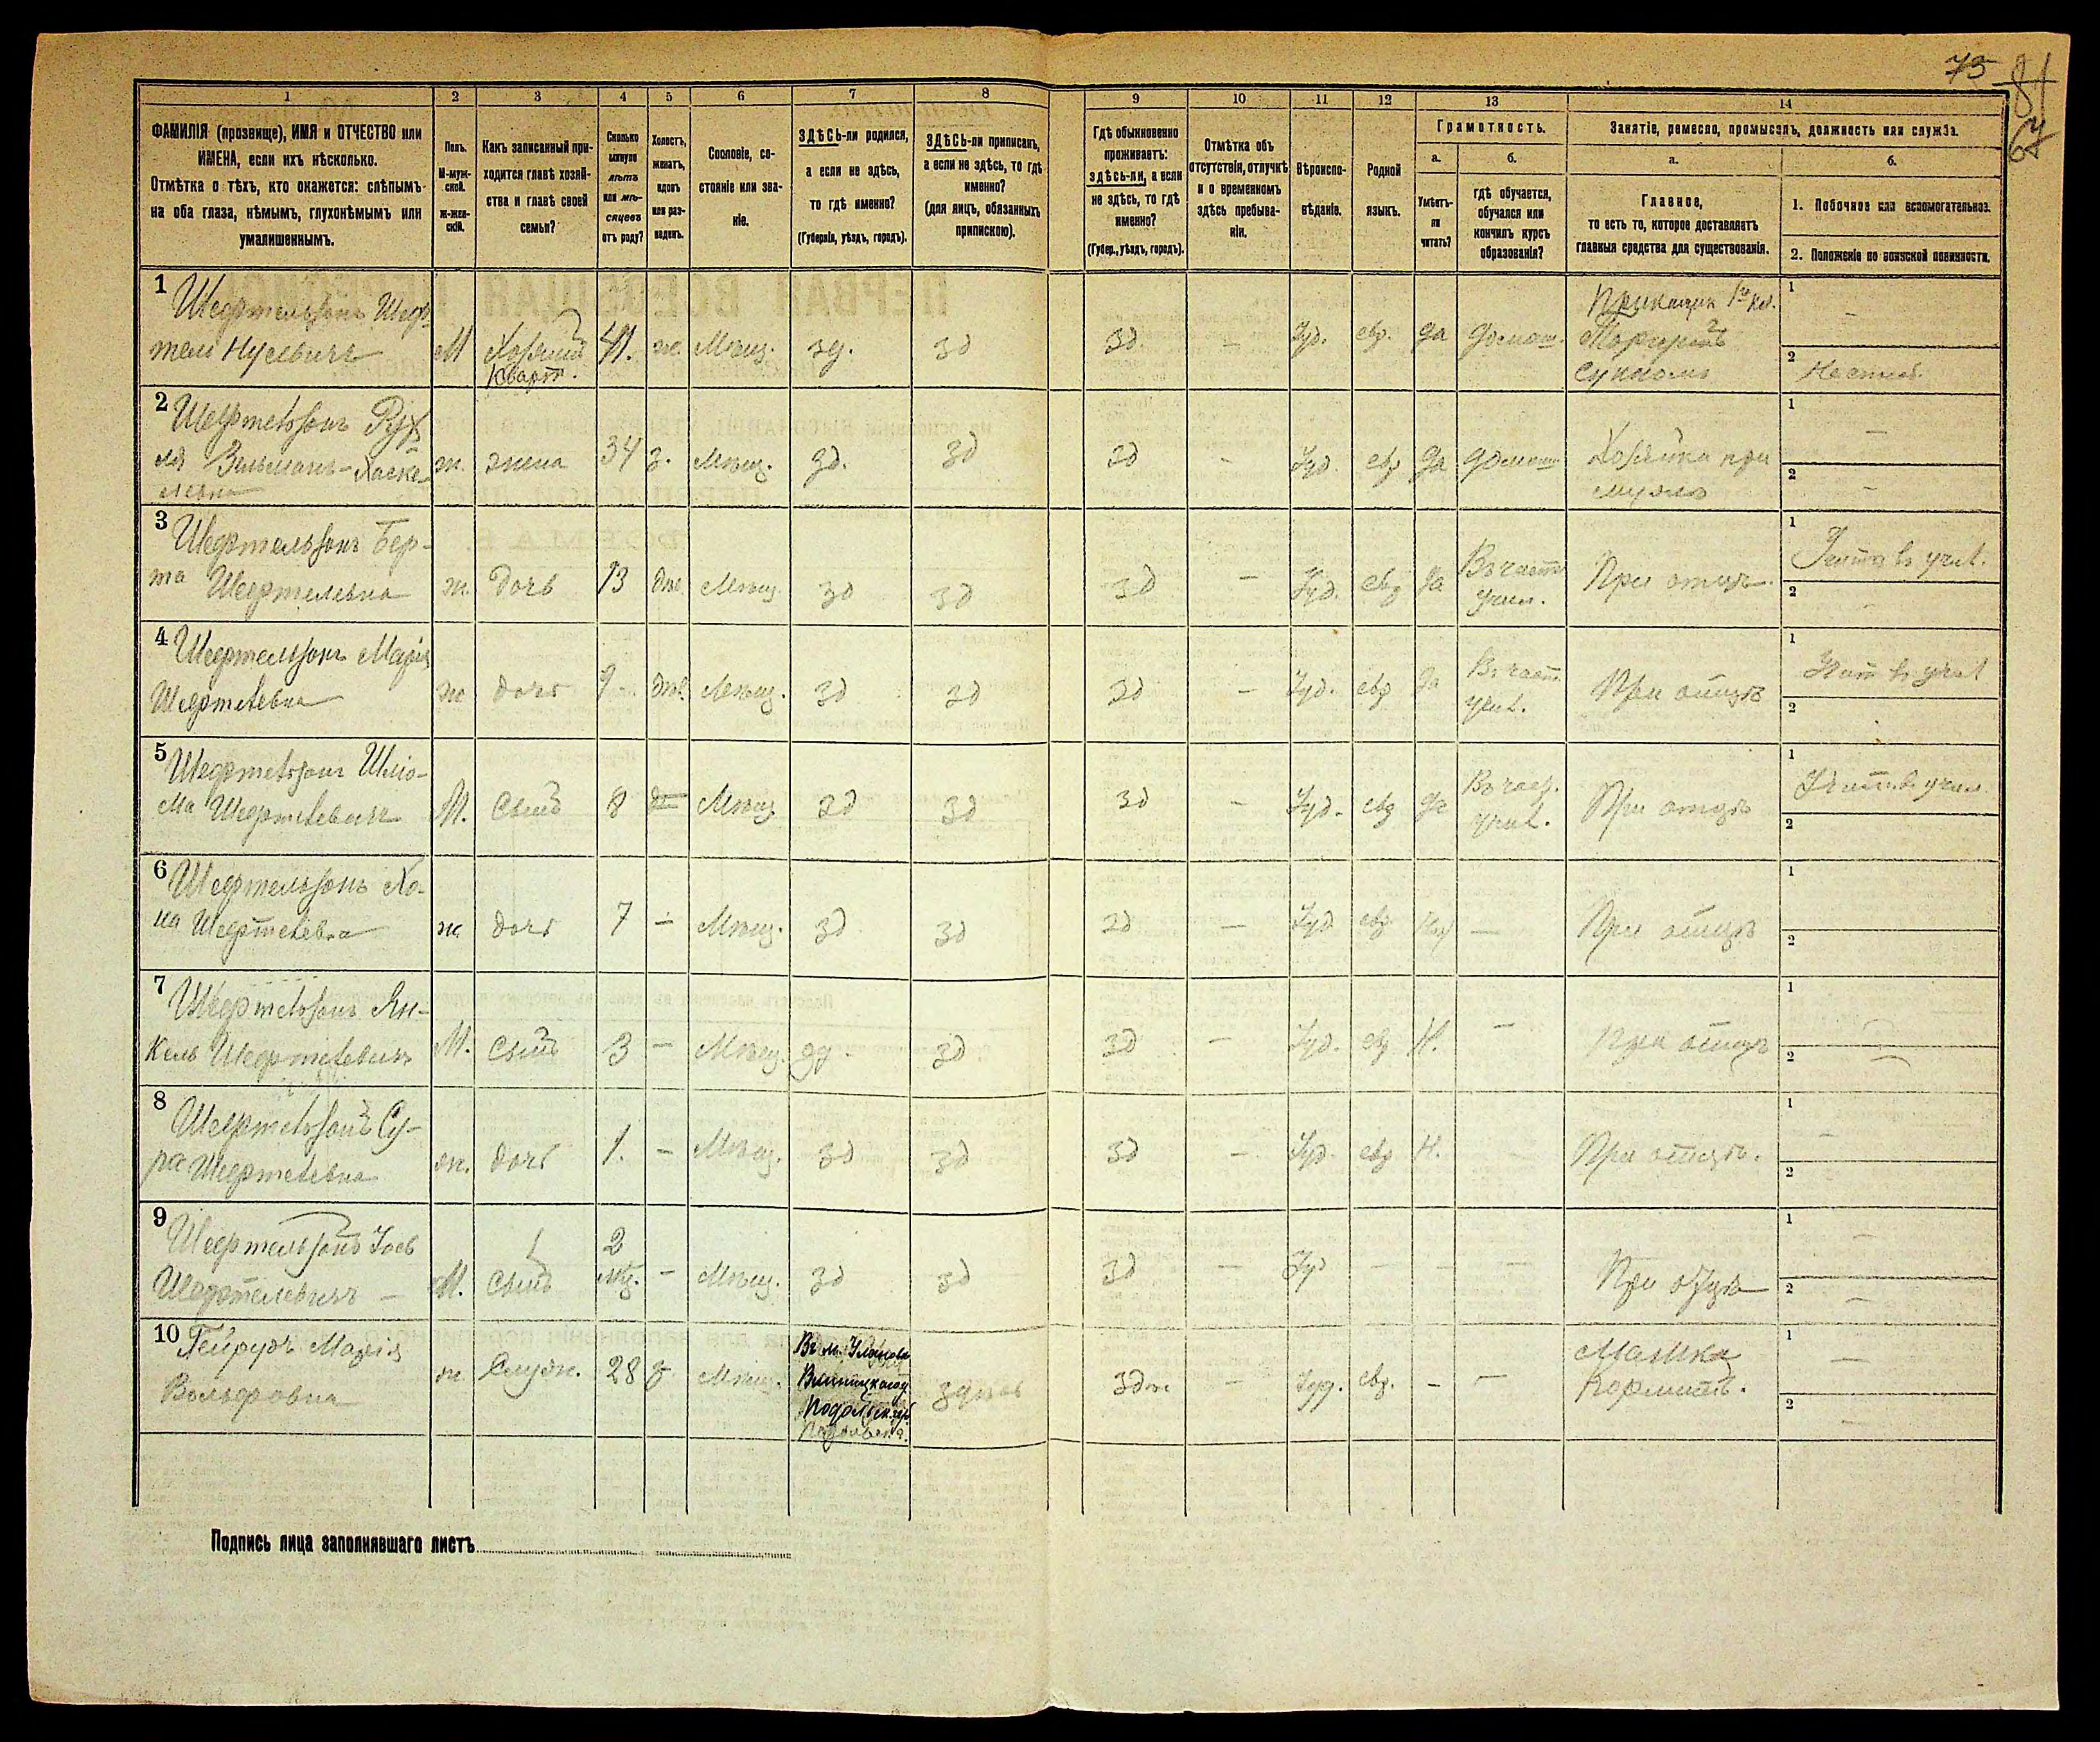 75
81
67
1 2 3 4 5 6 7 8 9 10 11 12 13 14
ФАМИЛІЯ (прозвище), ИМЯ и ОТЧЕСТВО или
ИМЕНА, если ихъ нѣсколько.
Отмѣтка о тѣхъ, кто окажется: слѣпымъ
на оба глаза, нѣмымъ, глухонѣмымъ или
умалишеннымъ.
Полъ.
М-муж-
ской.
Ж-жен-
скій.
Какъ записанный при-
ходится главѣ хозяй-
ства и главѣ своей
семьи?
Сколько
минуло
лѣтъ
или мѣ-
сяцевъ
отъ роду?
Холостъ,
женатъ,
вдовъ
или раз-
веденъ.
Сословіе, со-
стояніе или зва-
ніе.
ЗДѢСЬ-ли родился,
а если не здѣсь,
то гдѣ именно?
(Губернія, уѣздъ, городъ).
ЗДѢСЬ-ли приписанъ,
а если не здѣсь, то гдѣ
именно?
(для лицъ, обязанныхъ
припискою).
Гдѣ обыкновенно
проживаетъ:
здѣсь-ли, а если
не здѣсь, то гдѣ
именно?
(Губер., уѣздъ, городъ).
Отмѣтка объ
отсутствіи, отлучкѣ
и о временномъ
здѣсь пребыва-
ніи.
Вѣроиспо-
вѣданіе.
Родной
языкъ.
Грамотность.
а.
Умѣетъ-
ли
читать?
б.
гдѣ обучается,
обучался или
кончилъ курсъ
образованія?
Занятіе, ремесло, промыселъ, должность или служба.
а.
Главное,
то есть то, которое доставляетъ
главныя средства для существованія.
б.
1. Побочное или вспомогательное.
2. Положеніе по воинской повинности.
1 Шефтельзонъ Шеф-
тель Нусевичъ М Хозяинъ Кварт. 41. ж. Мѣщ. зд. зд зд - Іуд. евр. да домаш.
Торгуетъ
сукномъ
1 -
2
2 Шефтельзонъ Рух
ля Зельманъ-Хаске-
левна ж. жена 34 з. Мѣщ. зд. зд зд - Іуд. евр да домаш Хозяйка при
мужѣ
1 -
2 -
3 Шефтельзонъ Бер-
та Шефтелевна ж. дочь 13 дѣв. Мѣщ. зд зд зд - Іуд. евр да Въ част.
учил. При отцѣ.
1
2
4 Шефтельзонъ Марія
Шефтелевна ж дочь 9 дѣв. Мѣщ. зд зд зд - Іуд. евр да Въ част.
учил. При отцѣ
1
2
5 Шефтельзонъ Шліо-
ма Шефтелевичъ М. Сынъ 8 Мѣщ. зд зд зд - Іуд. евр да Въ част.
учил. При отцѣ
1
2
6 Шефтельзонъ Хо-
на Шефтелевна ж дочь 7 - Мѣщ. зд зд зд - Іуд евр - При отцѣ
1
2
7 Шефтельзонъ Ян-
кель Шефтелевичъ М. Сынъ 3 - Мѣщ. зд. зд зд - Іуд. евр Н. - При отцѣ
1
2
8 Шефтельзонъ Су-
ра Шефтелевна ж. дочь 1. - Мѣщ. зд зд зд - Іуд. евр Н. При отцѣ.
1 -
2
9 Шефтельзонъ Іось
Шефтелевичъ - М. Сынъ 2
мѣ. - Мѣщ. зд зд зд - Іуд - - - При отцѣ
1 -
2 -
10 Гейрухъ Марія
Вольфовна ж. Служ. 28 з. Мѣщ. Въ м. Уланова
Винницкого у
Подольск. губ. здѣсь здѣ - Іуд. евр. - - Мамка
кормил.
1 -
2 -
Подпись лица заполнявшаго листъ